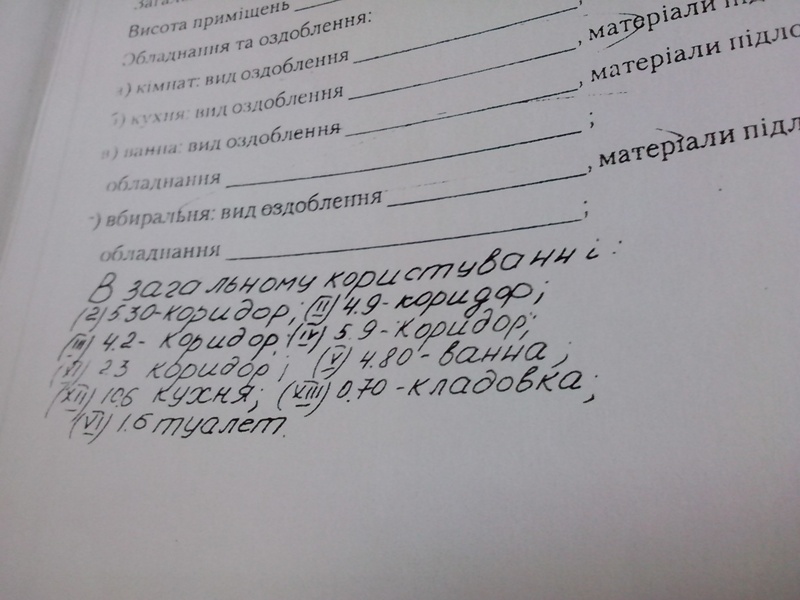 Висота приміщень
Обладнання та оздоблення:
а) кімнат: вид оздоблення ;
б) кухня: вид оздоблення , матеріали
в) ванна: вид оздоблення , матеріали підло
обладнання ;
г) вбиральня: вид оздоблення , матеріали підл
обладнання ;
В загальному користуванні:
(2) 5.30-коридор; (II) 4.9-коридор;
(III) 4.2-коридор; (IV) 5.9-коридор;
23 коридор; (V) 4.80-ванна;
(XII) 10.6 кухня; (XIII) 0.70-кладовка;
(VI) 1.6 туалет.